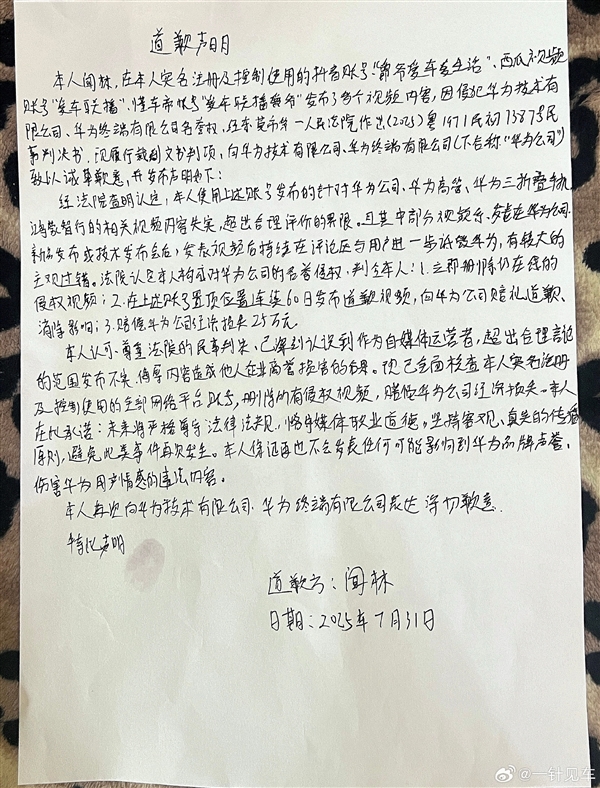 道歉声明
本人闻林,在本人实名注册及控制使用的抖音账号"爱车生活"、西瓜视频
账号"爱车联播"、懂车帝帐号"爱车联播"发布了多个视频内容,因侵犯华为技术有
限公司、华为终端有限公司名誉权,经东莞市第一人民法院作出(2025)粤1971民初13875民
事判决书。现履行裁判文书判项,向华为技术有限公司、华为终端有限公司(下合称"华为公司")
致以诚挚歉意,并发布声明如下:
经法院查明认定,本人使用上述账号发布的针对华为公司、华为高管、华为三折叠手机、
鸿蒙智行的相关视频内容失实,超出合理评价的界限。且其中部分视频系华为公司
新品发布或技术发布会后,发表视频后持续在评论区与用户进一步诋毁华为,有较大的
主观过错。法院认定本人构成对华为公司的名誉侵权,判令本人:1.立即删除仍在线的
侵权视频;2.在上述账号置顶位置连续60日发布道歉视频,向华为公司赔礼道歉、
消除影响;3.赔偿华为公司经济损失25万元。
本人认可、尊重法院的民事判决,已深刻认识到作为自媒体运营者,超出合理言论
的范围发布不实、侮辱内容造成他人企业商誉损害的后果。现已全面核查本人实名注册
及控制使用的全部网络平台账号,删除所有侵权视频,赔偿华为公司经济损失。本人
在此承诺:未来将严格遵守法律法规,恪守媒体职业道德,坚持客观、真实的传播
原则,避免此类事件再次发生。本人保证再也不会发表任何可能影响到华为品牌声誉、
伤害华为用户情感的违法内容。
本人再次向华为技术有限公司、华为终端有限公司表达深切歉意.
特此声明
道歉方:闻林
日期:2025年7月31日
@一针见车